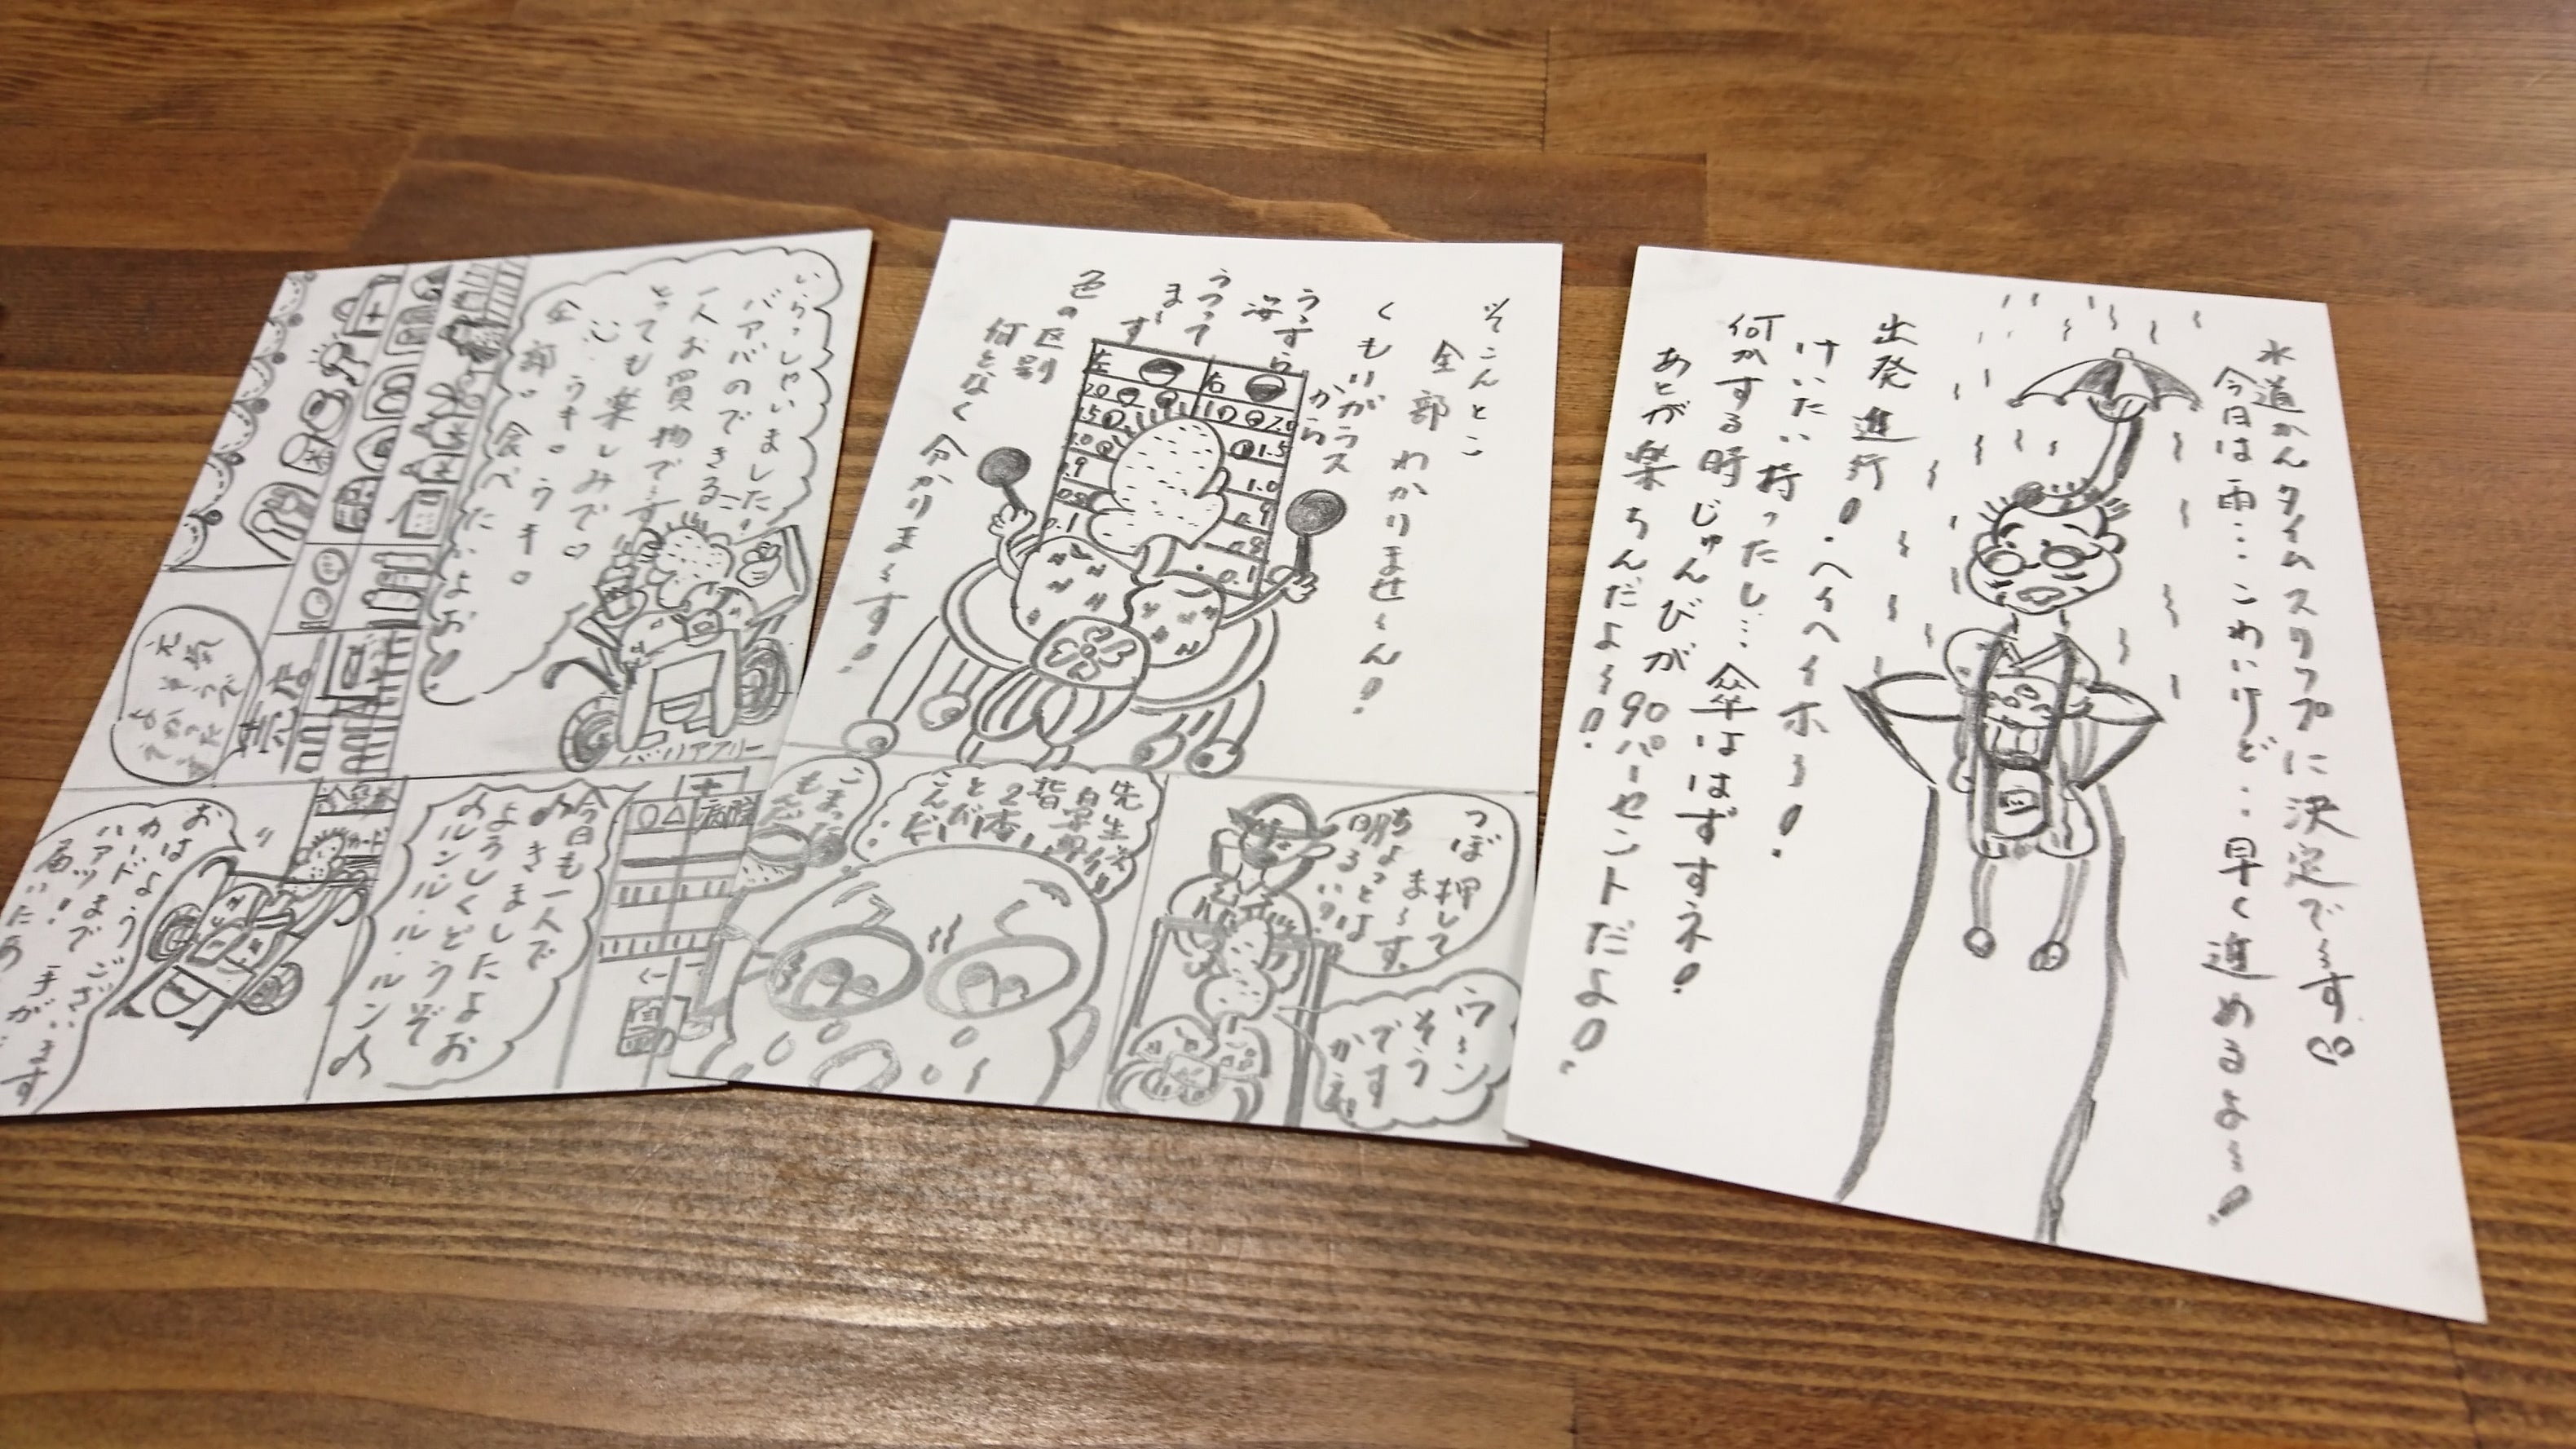 水道かんタイムスリップに決定で〜す
今日は雨…こわいけど…早く進めるよ〜!
出発進行!・ヘイヘイホ〜!
けいたい持ったし…傘ははずすネ!
何かする時じゅんびが90パーセントだよ!
あとが楽ちんだよ〜!
そこんとこ
全部わかりませ〜ん!
くもりガラス
から
うすら
うつって
ます
色の区別
何となく分かりま〜す!
左
右
2.0
1.5
1.0
0.1
つぼ押して
ま〜す。
ちょっとは
明るい?
ウ〜ン
そう
ですかネ
先生
指2本
こまった
もんだ
いらっしゃいました
バアバのできる
一人お買物で〜す
とっても楽しみで
ウキウキ
全部食べたいよお!
バリアフリー
売店
元気そうで
よかったです
病院
今日も一人で
きましたよお
よろしくどうぞ
ルンルン・ルンルン
カード
おはようございます
カードはハアッ!
まで手が
届いたあ